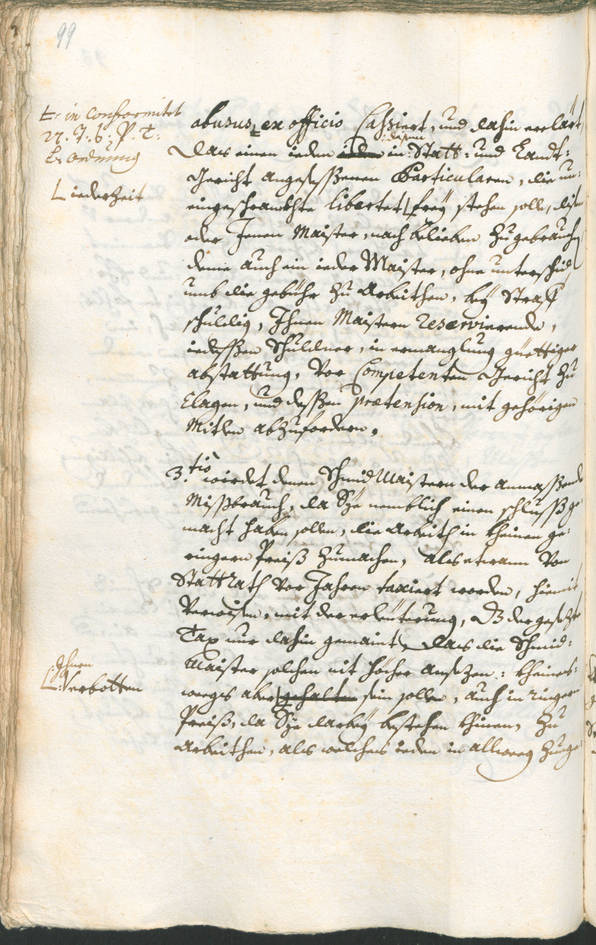 99
t: in Conformitet
27. T. 6. P: T:
Ordnung
Liederzeit
abusus, ex officio Cassiert, und dahin erclärt
Das einem ieden in Statt: und Landt:
Gericht angesessenen Particularen, die un:
eingeschrenkhte libertet frey stehen solle, disen
oder Jenen Maister, nach belieben zugebrauchen,
deme auch ein ieder Maister, ohne unterschid
umb die gebühr zu Arbeithen, bey Straff
schuldig, Ihnen Maistern reservierende,
iedessen Schuldner, in ermanglung güettiger
abstattung, vor Competenten Gericht zu
Clagen, und dessen praetension, mit gehörigen
Mitlen abzufordern.
3.tio wirdet denen Schmidmaistern der anmassende
Missbrauch, da Sye nemblich einen schluss ge:
macht haben sollen, die Arbeith in kheinen ge:
ringern Preiss zumachen, als etwann von
Stattrath vor Jahren taxiert worden, hiemit
verwisen, mit der erleüterung, dz der gesezte
Tax nur dahin gemaint, das die Schmid:
Maister solchen nit hocher ansezen: kheines:
weegs aber gehalten sein sollen, auch in ringern
Preiss, da Sye darbey bestehen khinen, zu
Arbeithen, als welches ieden in allweeg
Ihnen
L: Verbotten